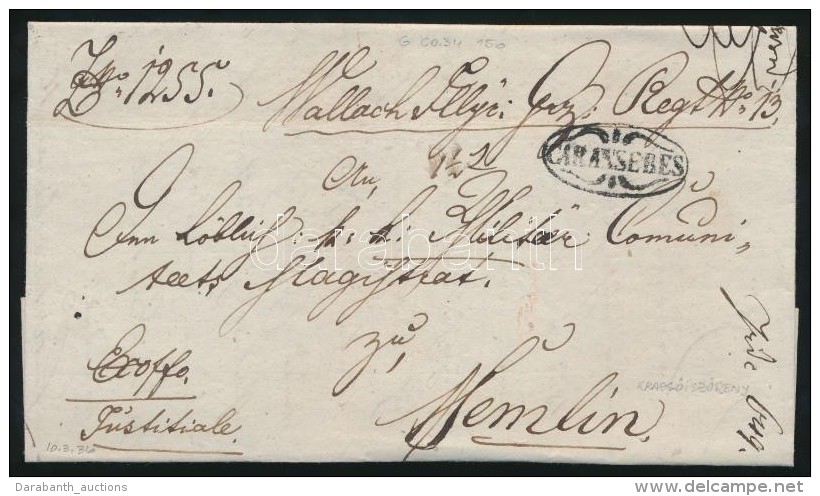 G CO.34 150
No. 1255.
Wallach Illyr: Grz: Regt No. 13.
CARANSEBES
An,
Löbliche k: k: Militär Comuni-
taets Magistrat.
zu,
Semlin.
Exoffo.
Justitiale.
10.3.34
KRASSÓ-SZÖRÉNY
darabanth
Darabanth_auctions
http://www.delcampe.net